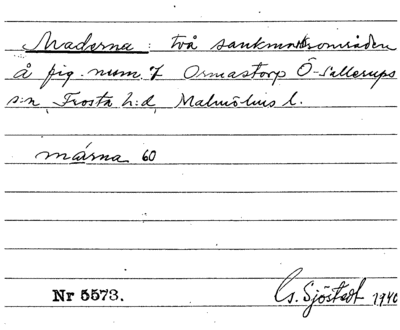 Maderna : två sankmarksområden
å fig. num. 7 Ormastorp Ö-Sallerups
s:n, Frosta h:d, Malmöhus l.
márna 60
Nr 5573.
G. Sjöstedt 1940